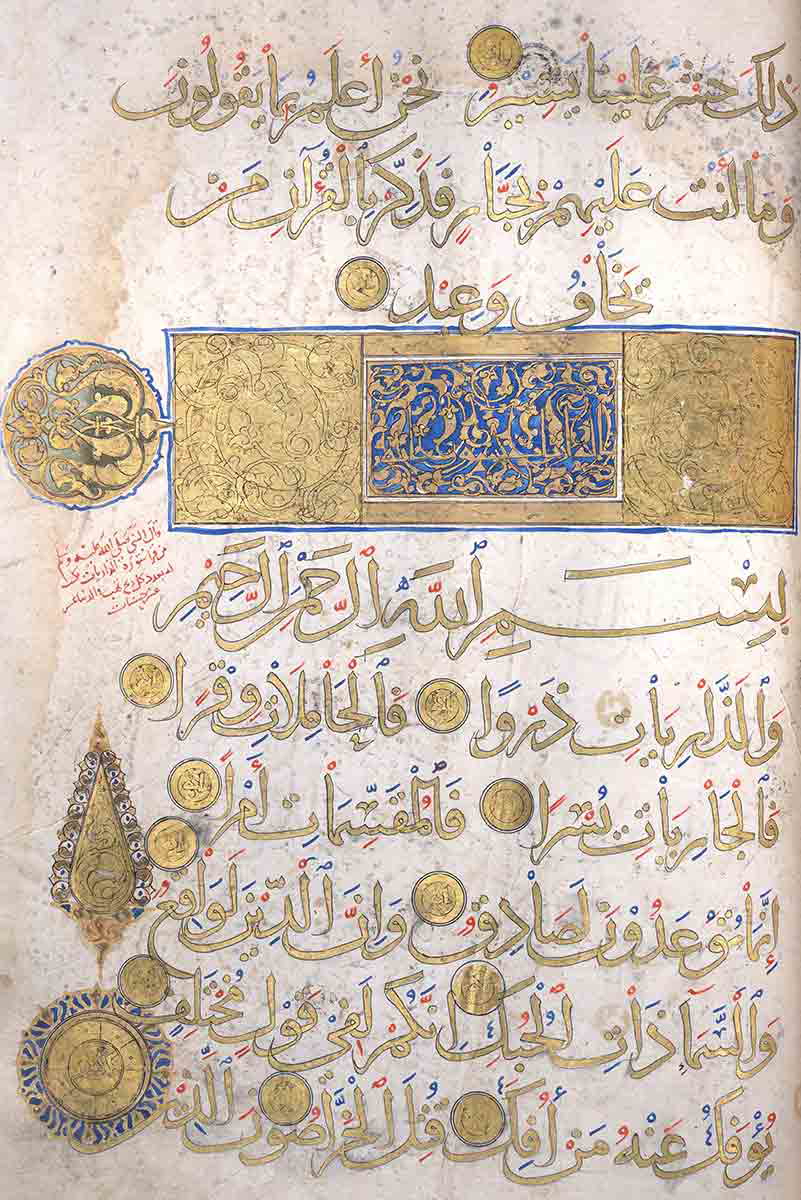 ذَلِكَ حَشْرٌ عَلَيْنَا يَسِيرٌ نَحْنُ أَعْلَمُ بِمَا يَقُولُونَ
وَمَا أَنْتَ عَلَيْهِمْ بِجَبَّارٍ فَذَكِّرْ بِالْقُرْآنِ مَنْ
يَخَافُ وَعِيدِ
قال النبي صلى الله عليه و
بِسْمِ اللَّهِ الرَّحْمَنِ الرَّحِيمِ
وَالذَّارِيَاتِ ذَرْوًا فَالْحَامِلَاتِ وِقْرًا
فَالْجَارِيَاتِ يُسْرًا فَالْمُقَسِّمَاتِ أَمْرًا
إِنَّمَا تُوعَدُونَ لَصَادِقٌ وَإِنَّ الدِّينَ لَوَاقِعٌ
وَالسَّمَاءِ ذَاتِ الْحُبُكِ إِنَّكُمْ لَفِي قَوْلٍ مُخْتَلِفٍ
يُؤْفَكُ عَنْهُ مَنْ أُفِكَ قُتِلَ الْخَرَّاصُونَ الَّذِينَ